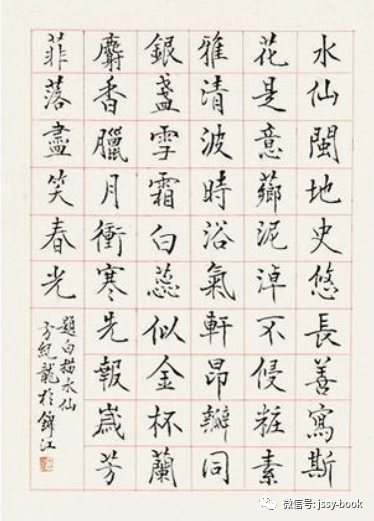 水仙閩地史悠長善寫斯
花是意薌泥淖不侵粧素
雅清波時浴氣軒昂瓣同
銀盞雪霜白蕊似金杯蘭
麝香臘月衝寒先報歲芳
菲落盡笑春光
題白描水仙
方紀龍於錦江
微信号:jssy-book